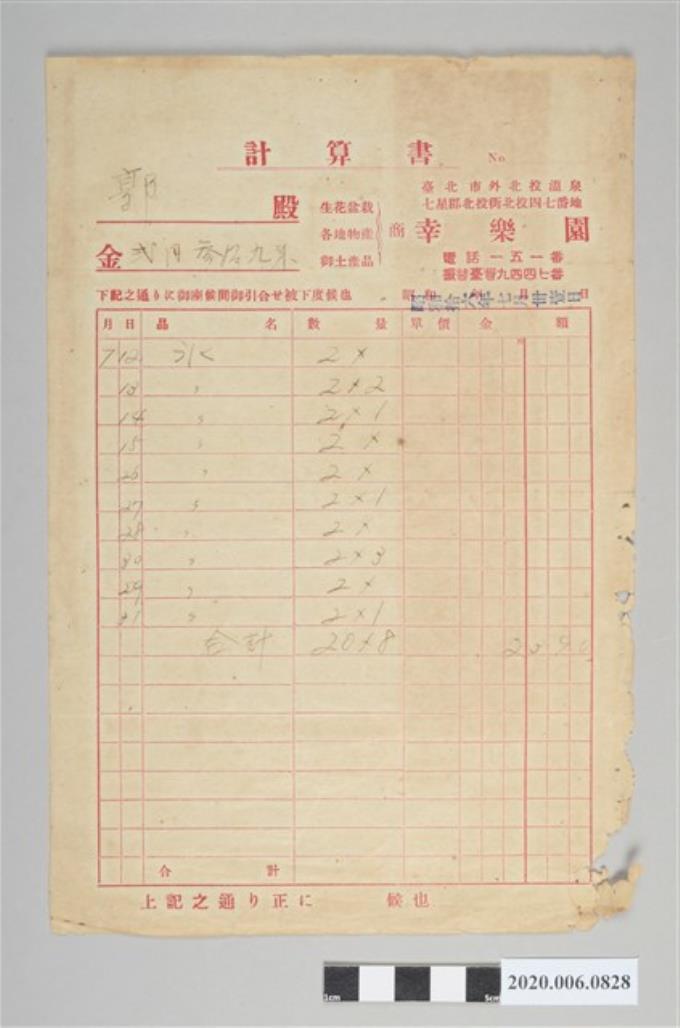 計算書 No.
郭 殿
金 弐円参拾九銭
生花盆栽
各地物産
御土産品
臺北市外北投溫泉
七星郡北投街北投四七番地
商 幸樂園
電話一五一番
振替臺灣九四四七番
下記之通リに御座候間御引合せ被下度候也
昭和拾六年七月卅壹日
月 日 品名 數量 單價 金額
7 12 氷 2×
13 〃 2×2
14 〃 2×1
15 〃 2×
26 〃 2×
27 〃 2×1
28 〃 2×
30 〃 2×3
29 〃 2×
31 〃 2×1
合計 20×8
合計
上記之通り正に 候也
1cm 5cm
2020.006.0828